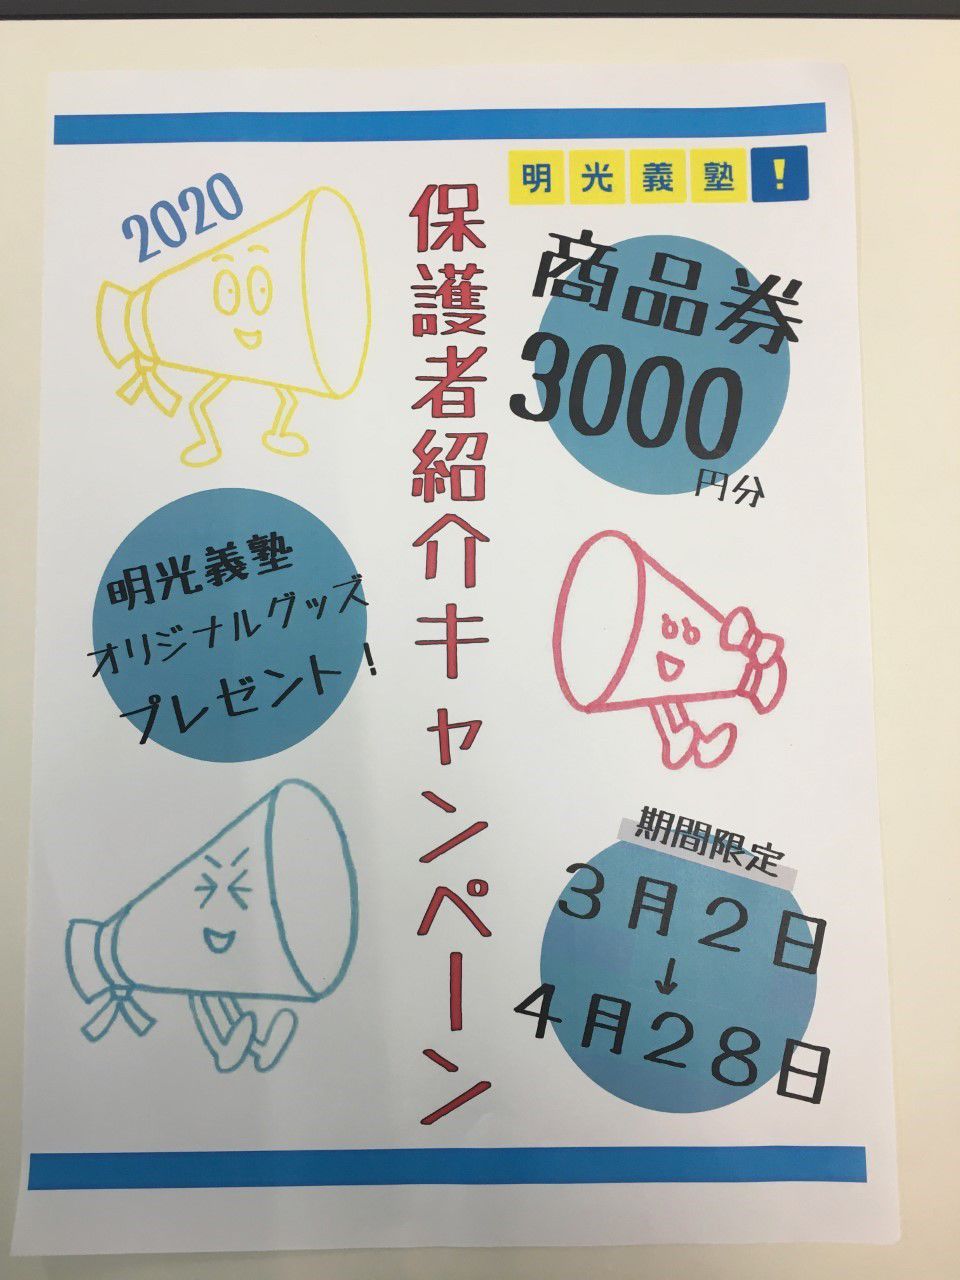 明光義塾!
2020
保護者紹介キャンペーン
商品券
3000
円分
明光義塾
オリジナルグッズ
プレゼント!
期間限定
3月2日
↓
4月28日